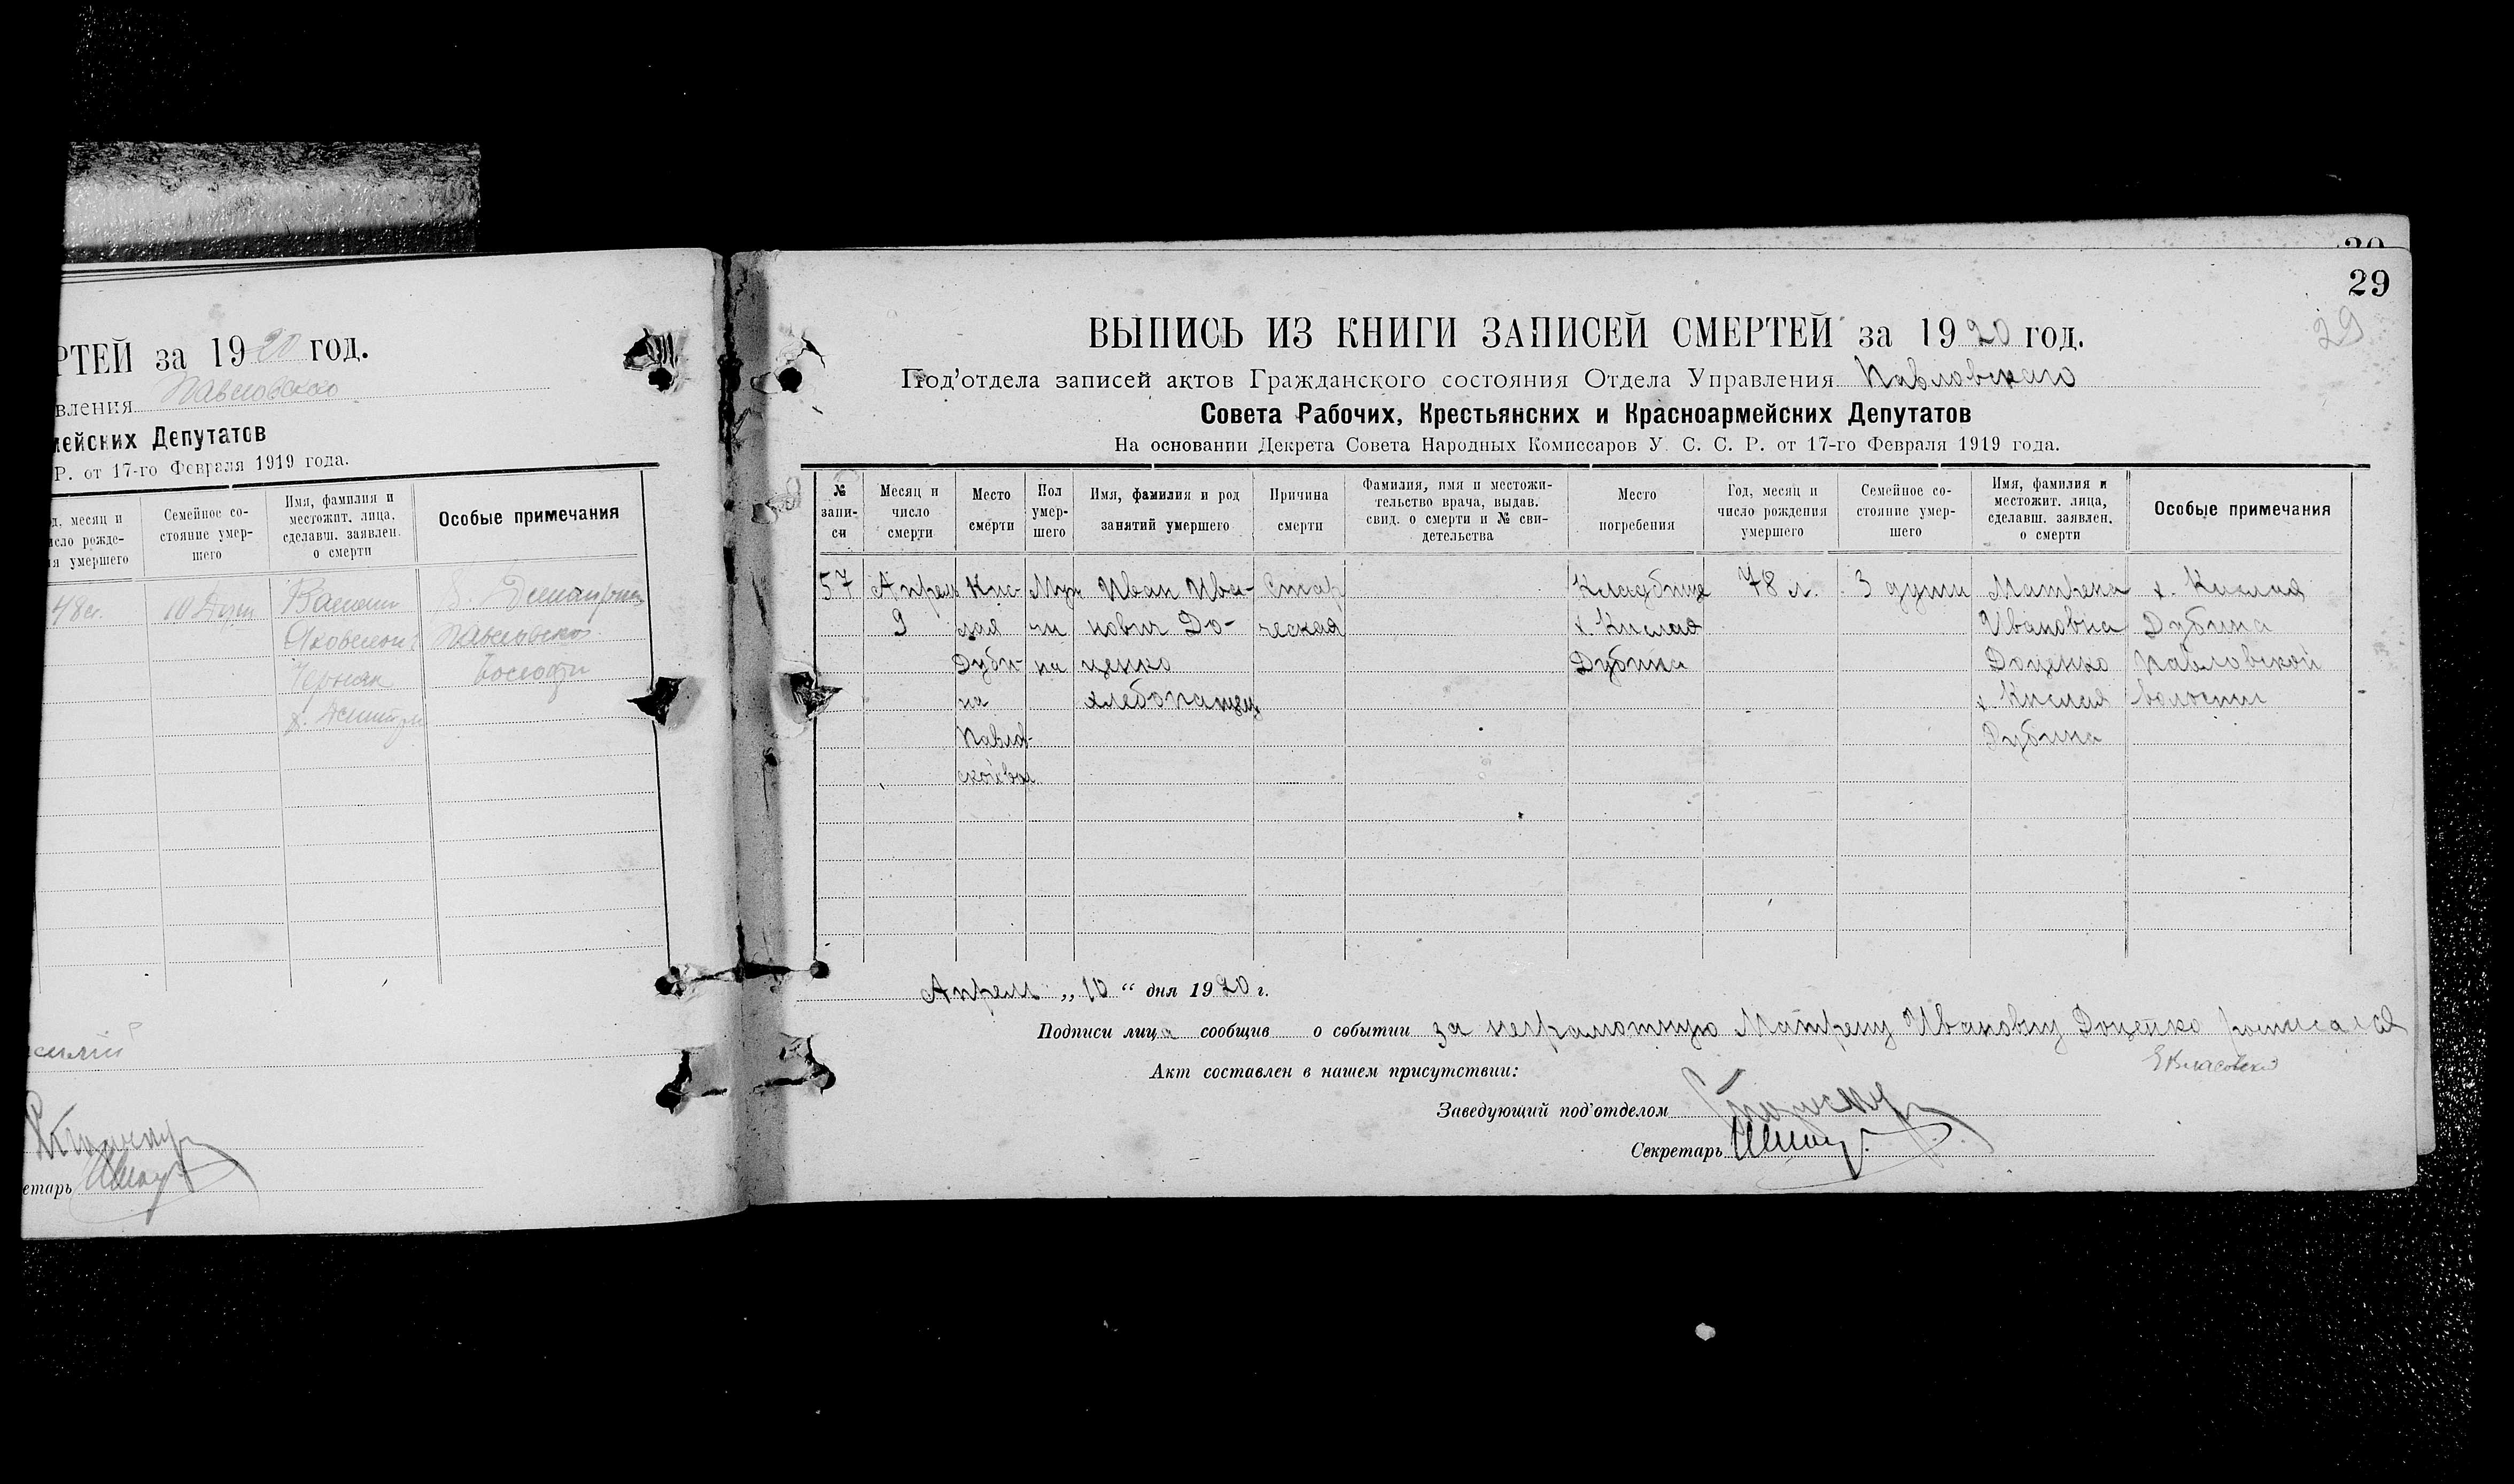 РТЕЙ за 1920 год.
вления Павловского
мейских Депутатов
Р. от 17-го Февраля 1919 года.
д, месяц и
исло рожде-
ия умершего
Семейное со-
стояние умер-
шего
Имя, фамилия и
местожит. лица,
сделавш. заявлен.
о смерти
Особые примечания
48 л.
10 душ
Яковлевич
Черняк
Павловской
Волости
етарь
30
29
29
ВЫПИСЬ ИЗ КНИГИ ЗАПИСЕЙ СМЕРТЕЙ за 1920 год.
Под'отдела записей актов Гражданского состояния Отдела Управления Павловскаго
Совета Рабочих, Крестьянских и Красноармейских Депутатов
На основании Декрета Совета Народных Комиссаров У. С. С. Р. от 17-го Февраля 1919 года.
№
запи-
си
Месяц и
число
смерти
Место
смерти
Пол
умер-
шего
Имя, фамилия и род
занятий умершего
Причина
смерти
Фамилия, имя и местожи-
тельство врача, выдав.
свид. о смерти и № сви-
детельства
Место
погребения
Год, месяц и
число рождения
умершего
Семейное со-
стояние умер-
шего
Имя, фамилия и
местожит. лица,
сделавш. заявлен.
о смерти
Особые примечания
57
Апрель
9
Кис-
лая
Дуби-
на
Павлов-
ской вол
Муж
чи
на
Иван Ива-
нович До-
ценко
хлебопашец
Стар
ческая
Кладбище
х. Кислая
Дубина
78 л.
3 души
Матрена
Ивановна
Доценко
х. Кислая
Дубина
х. Кислая
Дубина
Павловской
волости
Апрель „10“ дня 1920 г.
Подписи лица сообщив о событии за неграмотную Матрену Ивановну Доценко росписался
Акт составлен в нашем присутствии:
Заведующий под'отделом
Секретарь